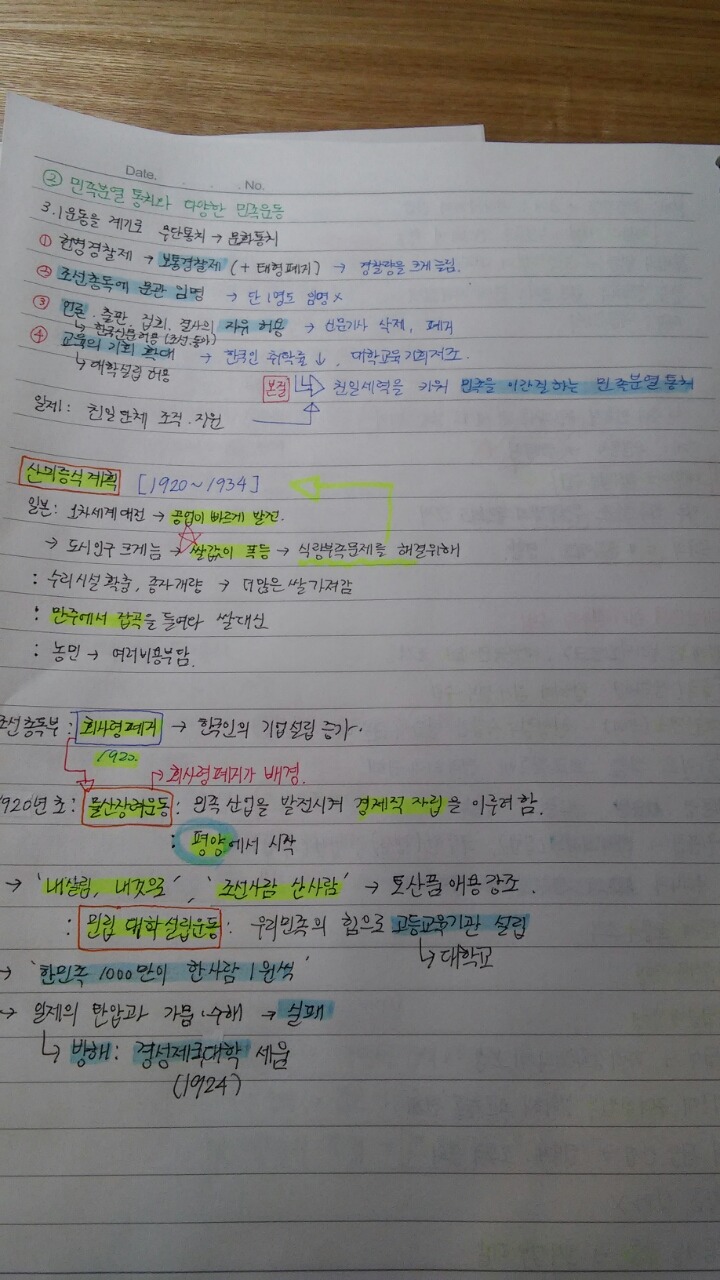 Date. . . No.
② 민족분열 통치와 다양한 민족운동
3.1운동을 계기로 무단통치 → 문화통치
① 헌병경찰제 → 보통경찰제 (+ 태형폐지) → 경찰량을 크게 늘림.
② 조선총독에 문관 임명 → 단 1명도 임명 x
③ 언론. 출판. 집회. 결사의 자유 허용 → 신문기사 삭제, 폐지
↳ 한국신문허용 (조선.동아)
④ 교육의 기회 확대 → 한국인 취학률 ↓, 대학교육 기회저조.
↳ 대학설립 허용
본질 친일세력을 키워 민족을 이간질하는 민족분열 통치
일제: 친일단체 조직.지원
산미증식계획 [1920~1934]
일본: 1차세계대전 → 공업이 빠르게 발전.
→ 도시인구 크게늚 → 쌀값이 폭등 → 식량부족문제를 해결위해
: 수리시설 확충, 종자개량 → 더많은 쌀 가져감
: 만주에서 잡곡을 들여와 쌀대신
: 농민 → 여러비용부담.
조선총독부: 회사령폐지 → 한국인의 기업설립 증가.
1920.
→ 회사령폐지가 배경.
1920년 초: 물산장려운동: 민족 산업을 발전시켜 경제적 자립을 이루려함.
: 평양에서 시작
→ '내살림, 내것으로', '조선사람 산사람' → 토산품 애용강조.
: 민립 대학설립운동: 우리민족의 힘으로 고등교육기관 설립
↳ 대학교
→ '한민족 1000만이 한사람 1원씩'
→ 일제의 탄압과 가뭄.수해 → 실패
↳ 방해: 경성제국대학 세움
(1924)